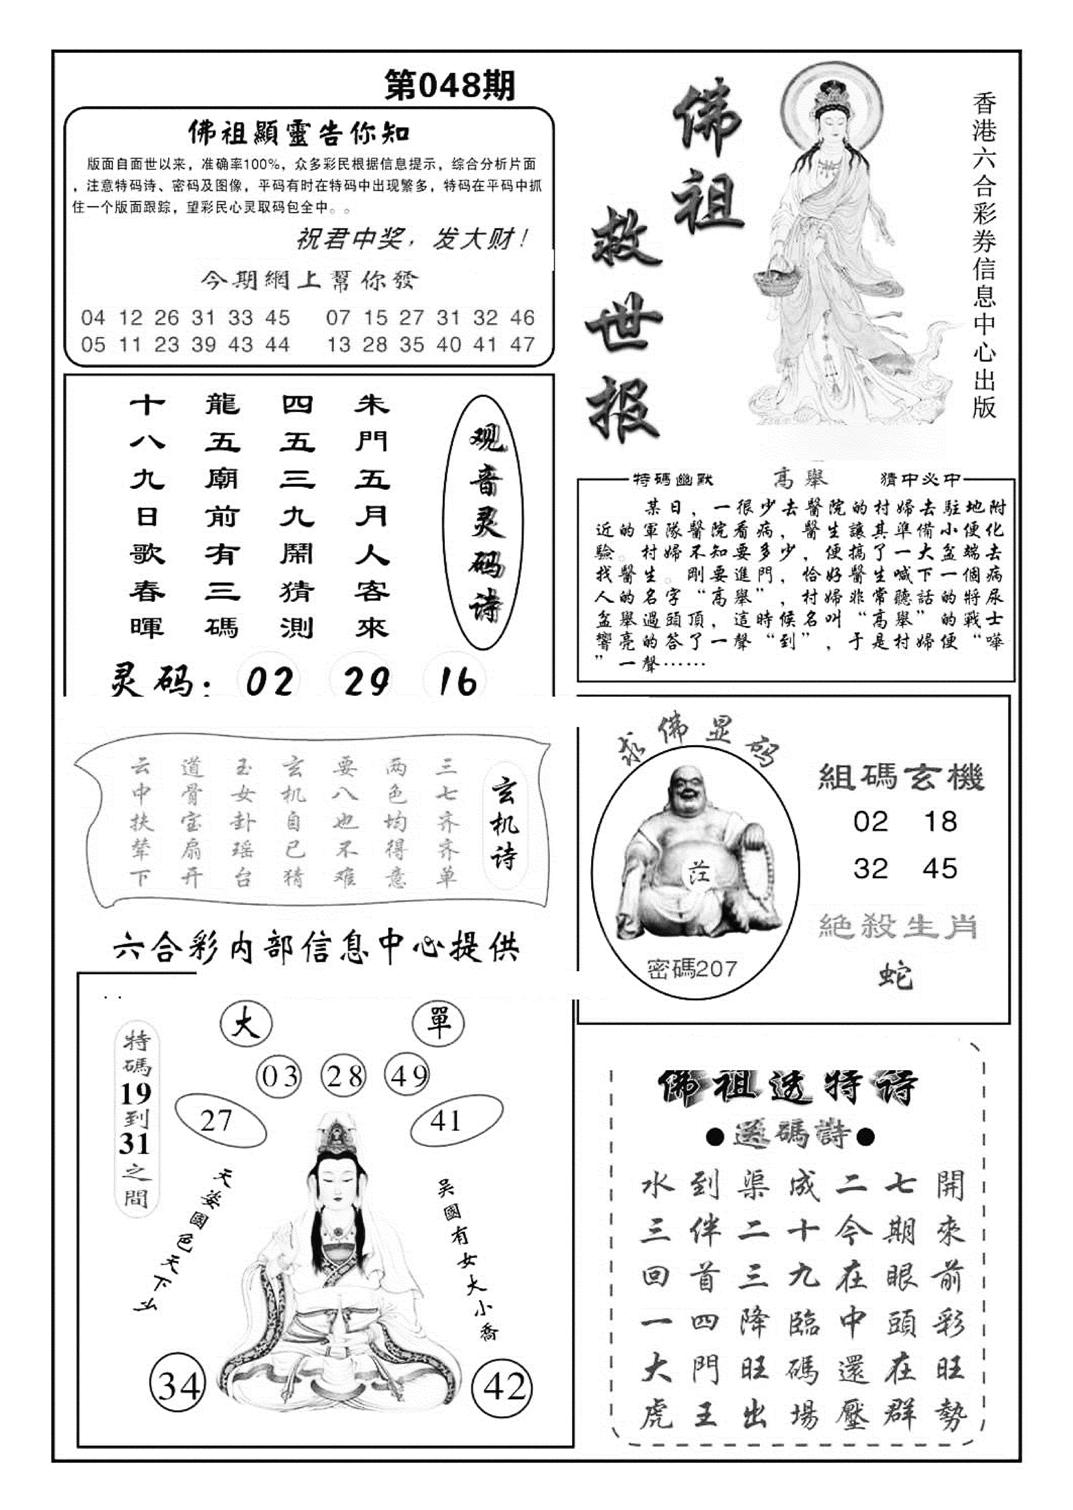 第048期
佛祖顯靈告你知
版面自面世以来，准确率100%，众多彩民根据信息提示，综合分析片面
，注意特码诗、密码及图像，平码有时在特码中出现繁多，特码在平码中抓
住一个版面跟踪，望彩民心灵取码包全中。。
祝君中奖，发大财！
今期網上幫你發
04 12 26 31 33 45 07 15 27 31 32 46
05 11 23 39 43 44 13 28 35 40 41 47
佛祖
救世报
香港六合彩券信息中心出版
观音灵码诗
朱門五月人客來
四五三九鬧猜測
龍五廟前有三碼
十八九日歌春暉
灵码：02 29 16
特碼幽默 高舉 猜中必中
某日，一很少去醫院的村婦去駐地附
近的軍隊醫院看病，醫生讓其準備小便化
驗。村婦不知要多少，便搞了一大盆端去
找醫生。剛要進門，恰好醫生喊下一個病
人的名字“高舉”，村婦非常聽話的將尿
盆舉過頭頂，這時候名叫“高舉”的戰士
響亮的答了一聲“到”，于是村婦便“嘩
”一聲……
玄机诗
三七齐齐单
两色均得意
要八也不难
玄机自已猜
玉女卦瑶台
道骨宝扇开
云中扶辇下
六合彩内部信息中心提供
求佛显码
密碼207
組碼玄機
02 18
32 45
絕殺生肖
蛇
大 單
03 28 49
27 41
特碼19到31之間
天姿國色天下少
吴國有女大小喬
34 42
佛祖透特诗
●送碼詩●
水到渠成二七開
三伴二十今期來
回首三九在眼前
一四降臨中頭彩
大門旺碼還在旺
虎王出場壓群勢